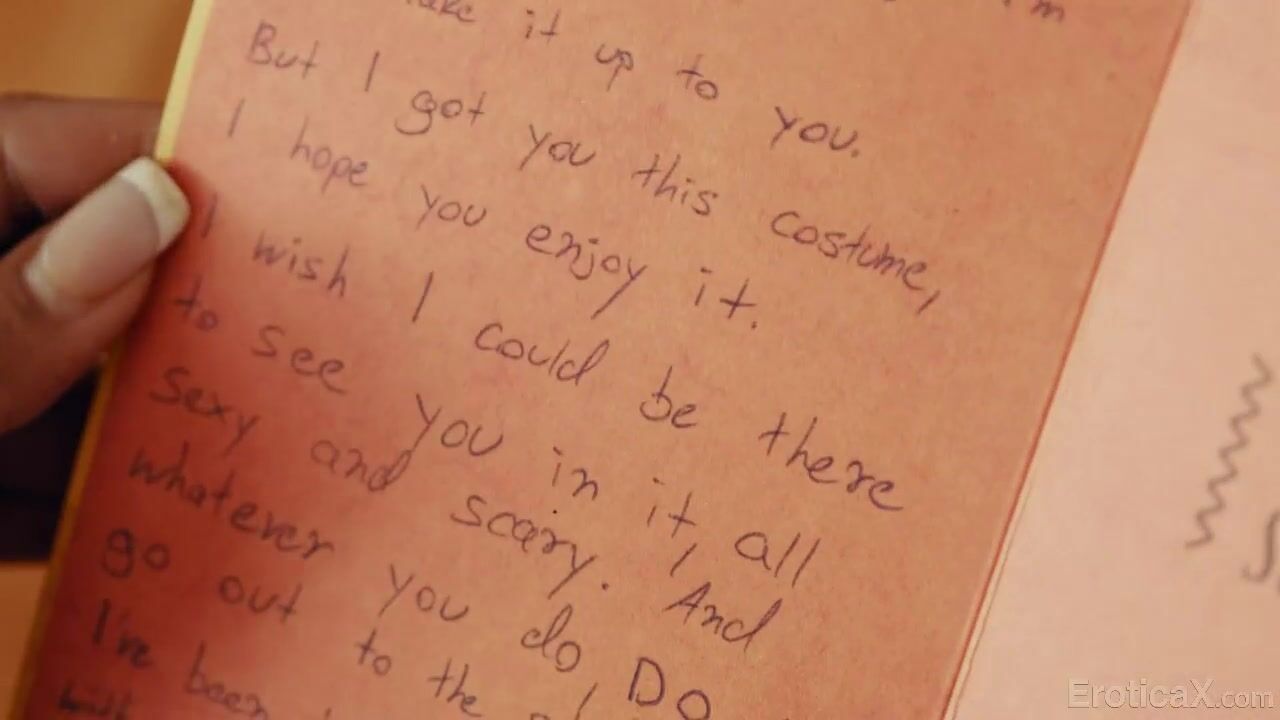 I'm
it up to you.
But I got you this costume,
I hope you enjoy it.
I wish I could be there
to see you in it, all
sexy and scary. And
whatever you do, DO
go out to the
I've been
EroticaX.com